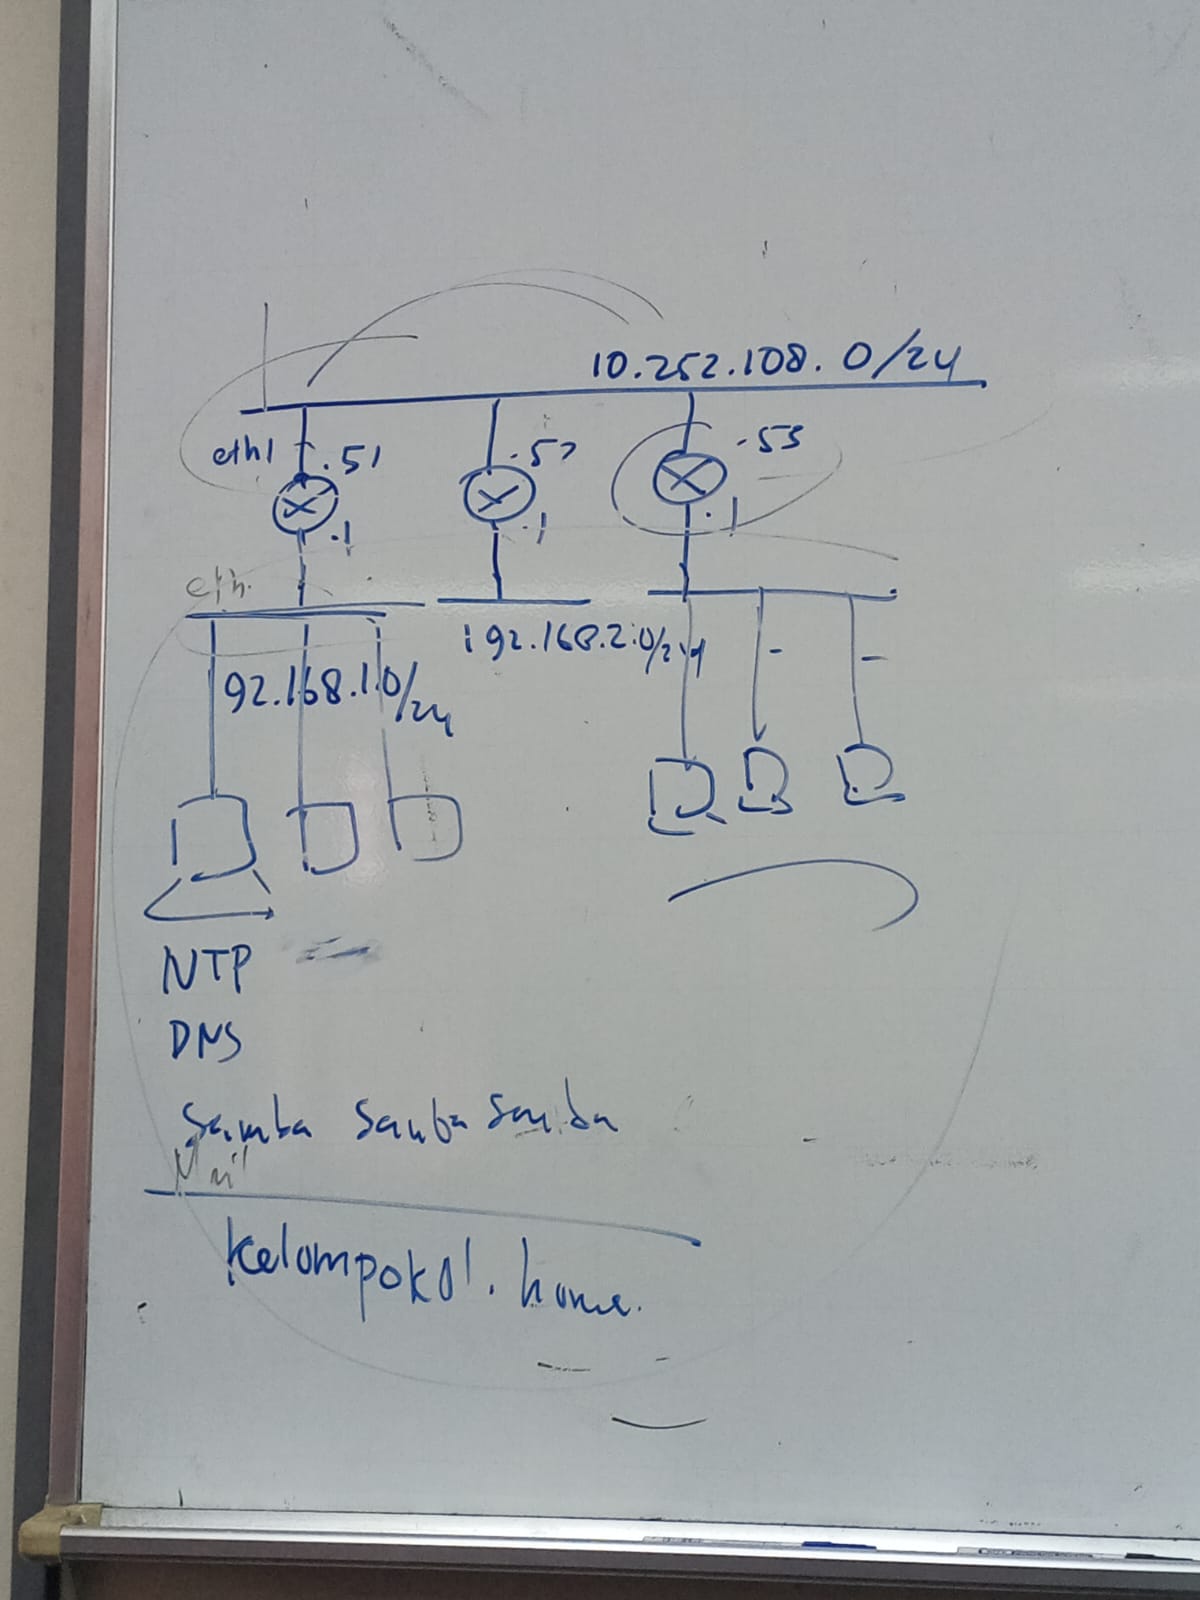 10.252.108.0/24
eth1 .51 .52 .53
.1 .1 .1
eth.
192.168.2.0/24
92.168.1.0/24
NTP
DNS
Samba Samba Samba
Mail
Kelompok01.home.